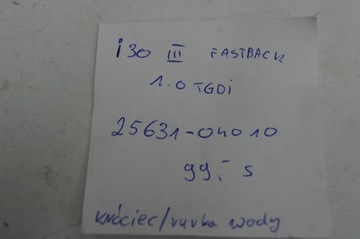 i30 III FASTBACK
1.0 TGDi
25631-04010
99,- s
króciec/rurka wody